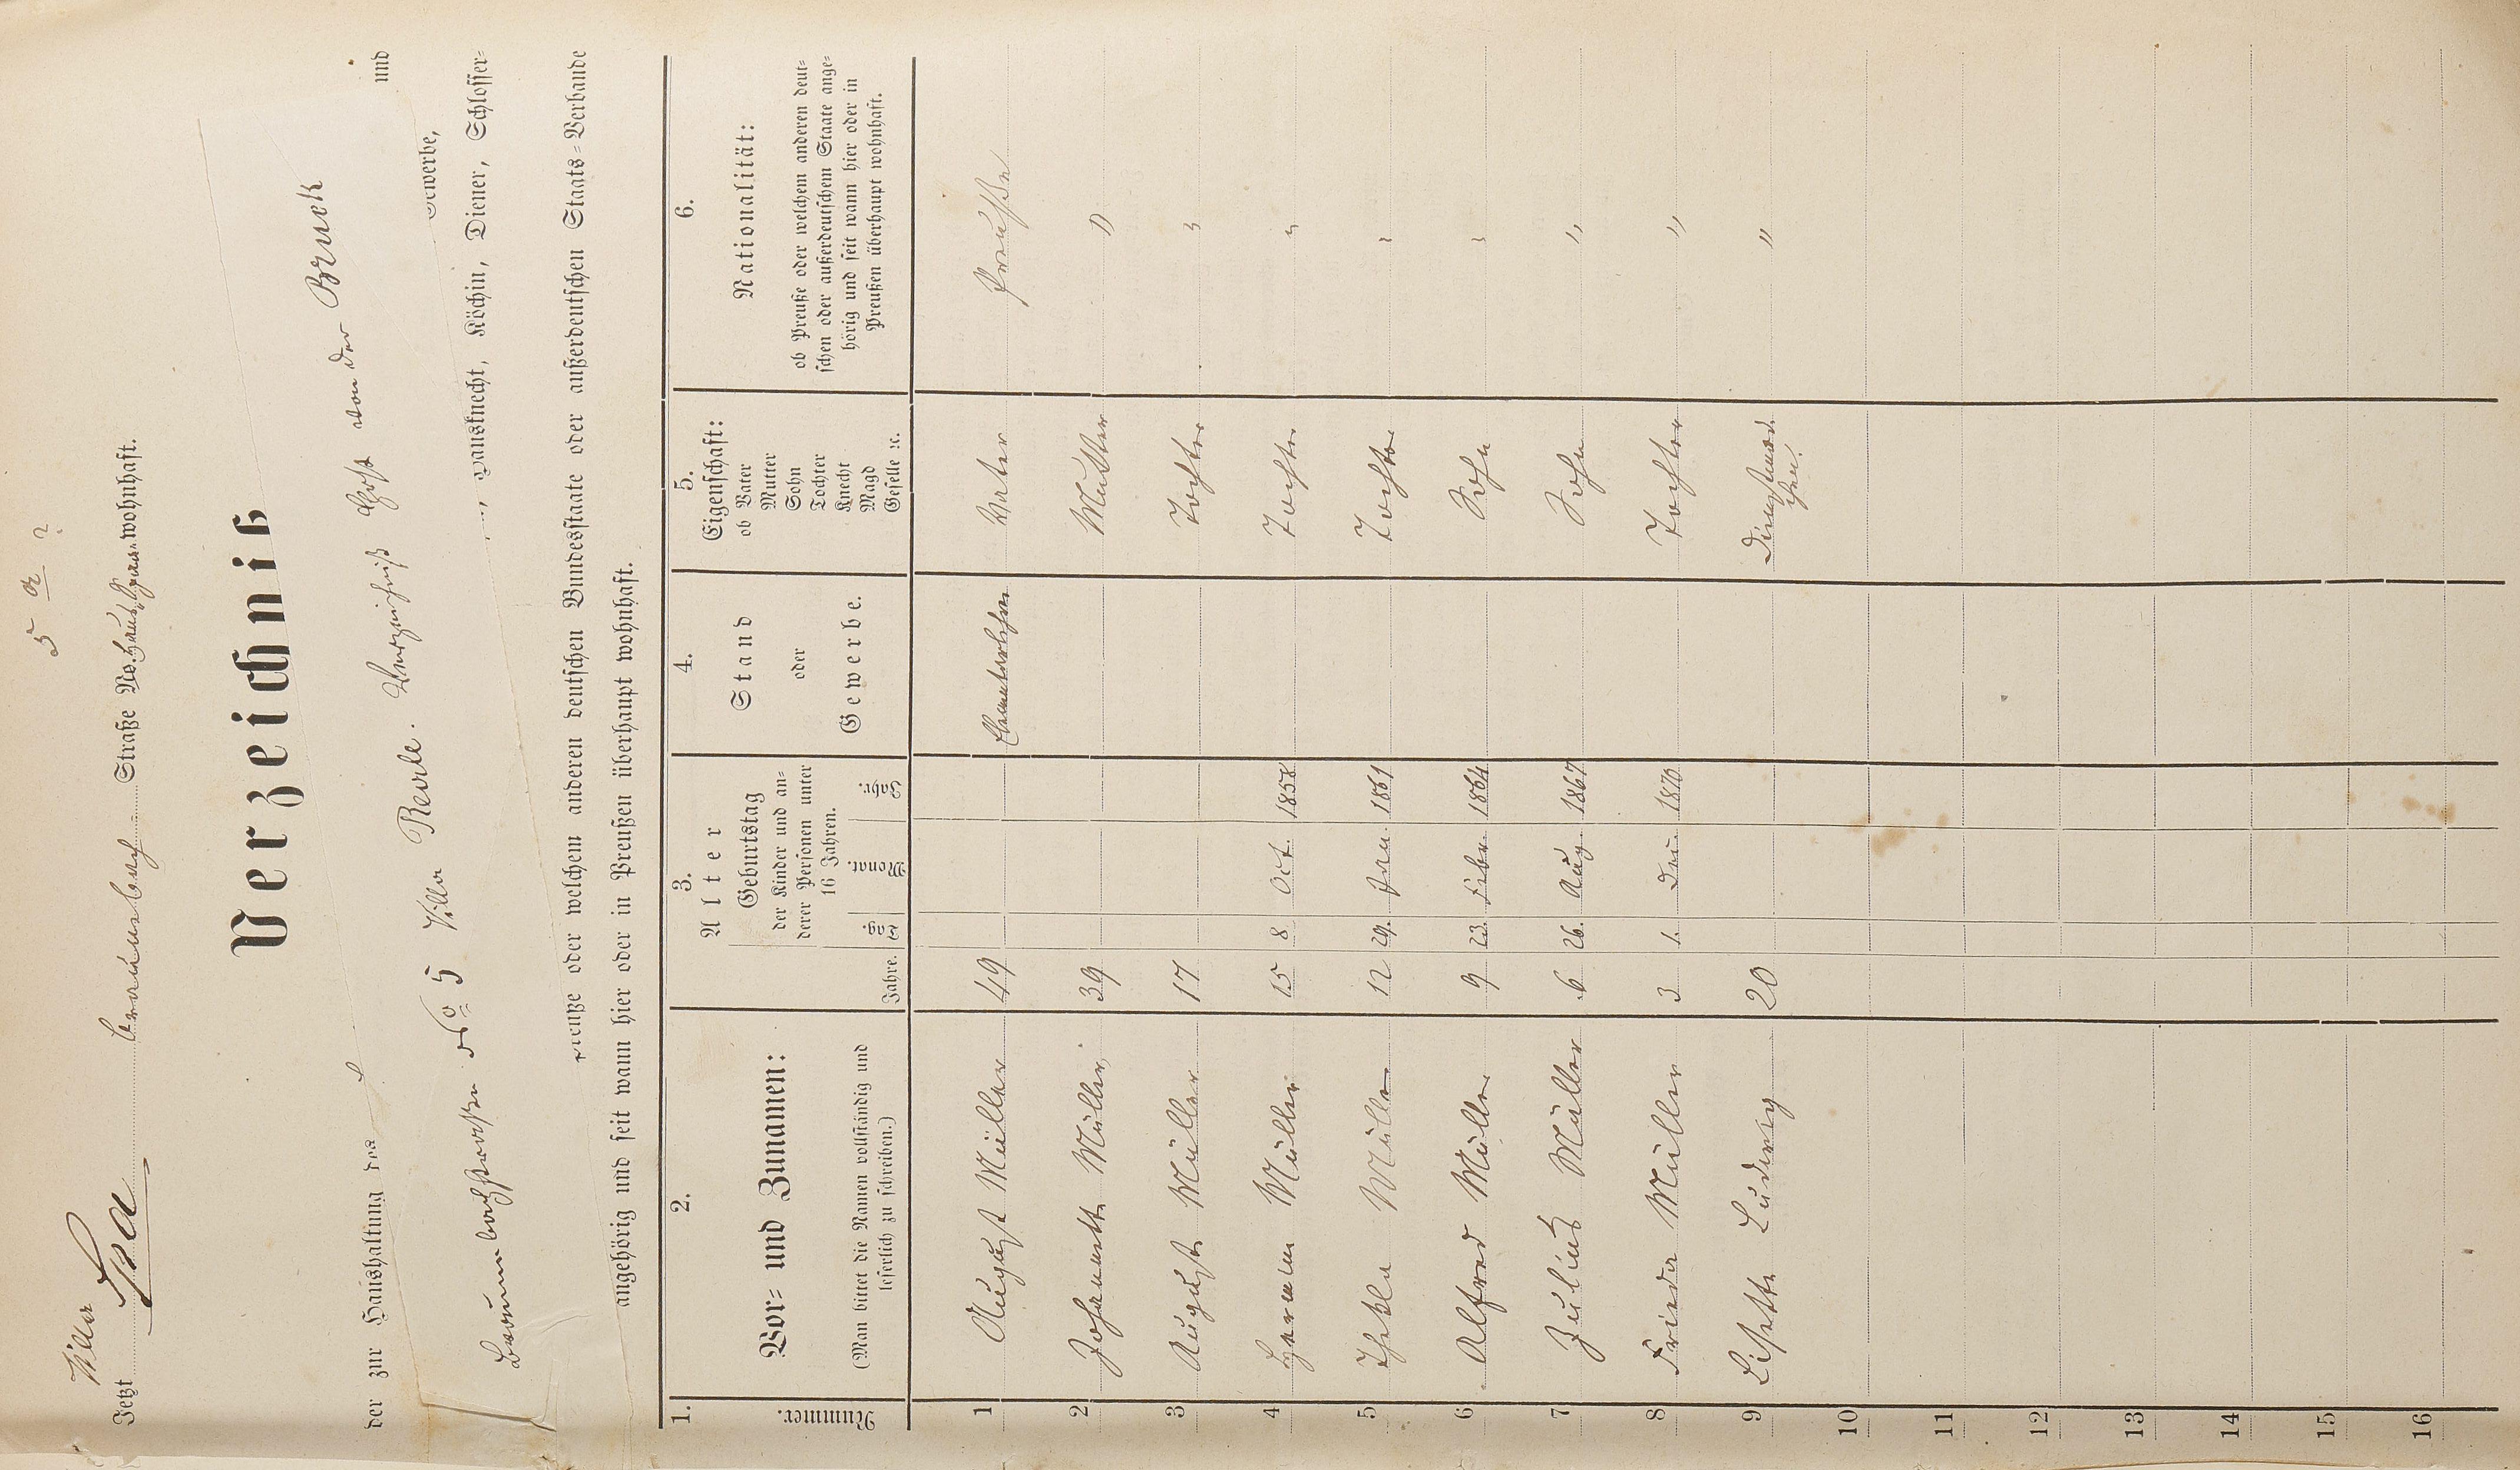 5 a ?
Villa
Jetzt Braunenbach Straße No. wohnhaft.
Verzeichniß
der zur Haushaltung des und
von der Bruck
Gewerbe,
No 5 Villa Verzeichniß
Hausknecht, Köchin, Diener, Schlosser-
Preuße oder welchem anderen deutschen Bundesstaate oder außerdeutschen Staats-Verbande
angehörig und seit wann hier oder in Preußen überhaupt wohnhaft.
1. 2. 3. 4. 5. 6.
Nummer.
Vor- und Zunamen:
(Man bittet die Namen vollständig und
leserlich zu schreiben.)
Alter
Jahre.
Geburtstag
der Kinder und an-
derer Personen unter
16 Jahren.
Tag. Monat. Jahr.
Stand
oder
Gewerbe.
Eigenschaft:
ob Vater
Mutter
Sohn
Tochter
Knecht
Magd
Geselle ꝛc.
Nationalität:
ob Preuße oder welchem anderen deut-
schen oder außerdeutschem Staate ange-
hörig und seit wann hier oder in
Preußen überhaupt wohnhaft.
1 August Müller 49 Elementarlehrer Vater Preuße
2 Johannette Müller 39 Mutter "
3 Auguste Müller 17 Tochter "
4 Hermine Müller 15 8 Oct. 1858 Tochter "
5 Thekla Müller 12 29. Jan. 1861 Tochter "
6 Alfred Müller 9 23. Febr. 1864 Sohn "
7 Julius Müller 6 26. Aug. 1867 Sohn "
8 Frieda Müller 3 1. 1870 Tochter "
9 Lisette Ludwig 20 Dienstmäd-
chen. "
10
11
12
13
14
15
16